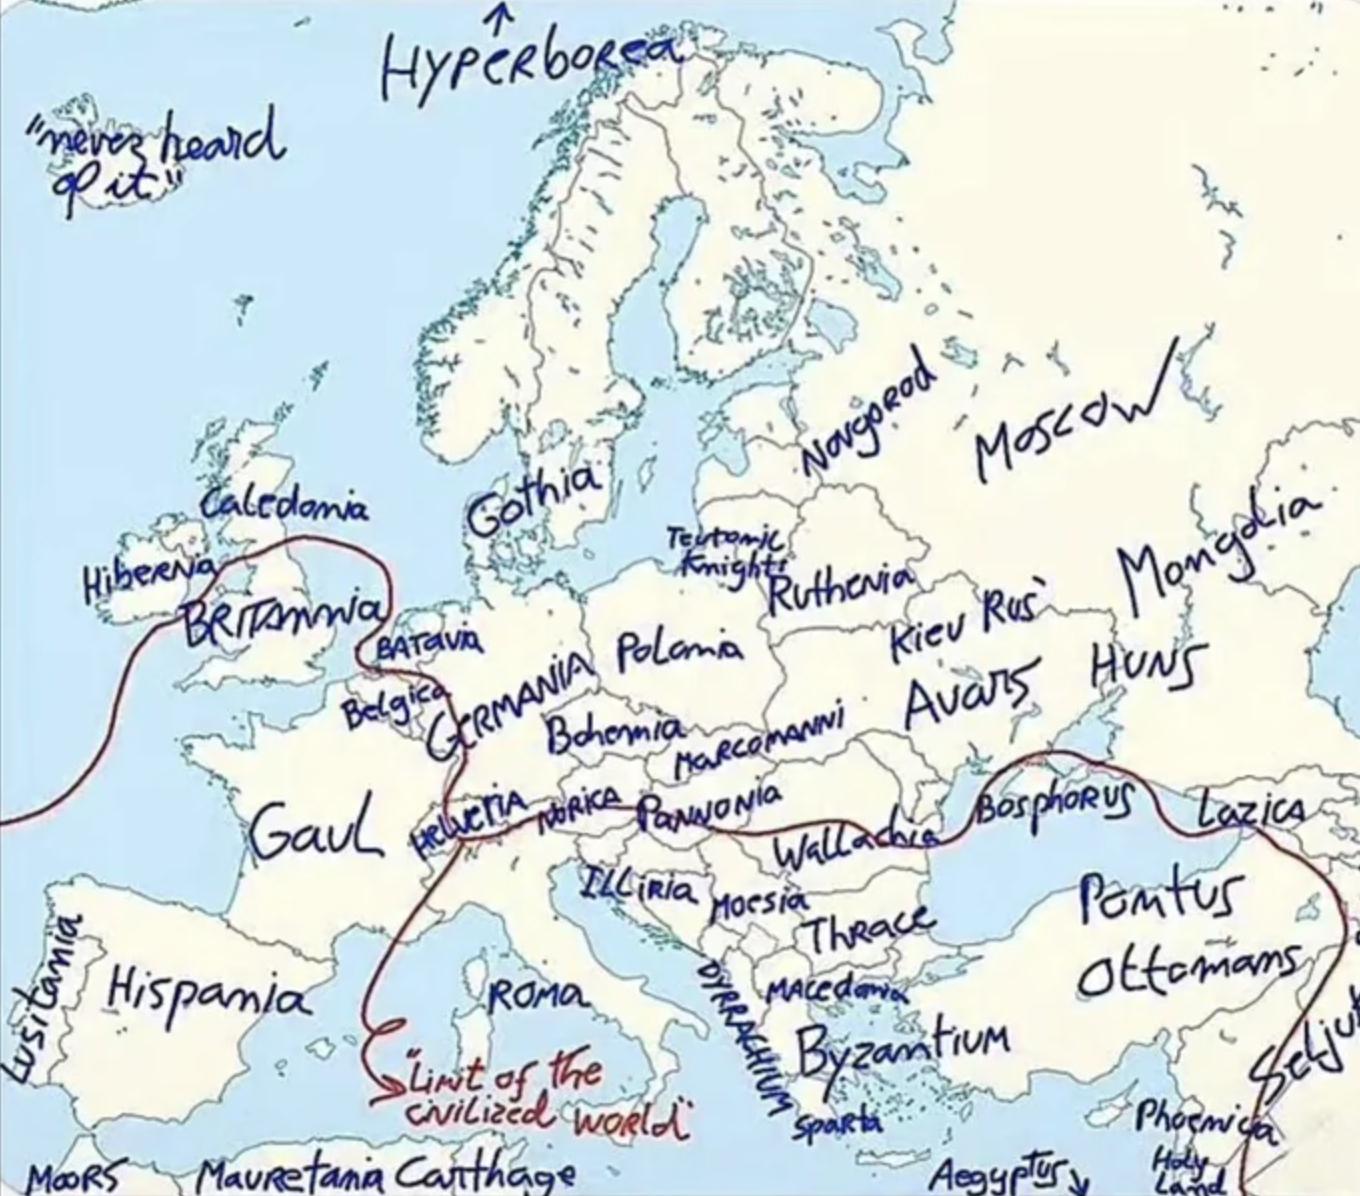 HYPERborea
"never heard
of it"
Novgorod
Moscow
Caledonia
Gothia
Teutonic
Knights
Mongolia
Hibernia
BRITAnnia
Ruthenia
Kiev Rus'
BATavia
Polonia
HUNS
Belgica
GERMANIA
Avars
Bohemia
MARCOMANNI
Gaul
HELVETIA
NORICA
PANNONIA
Wallachia
BosphoRUS
Lazica
ILLiRIA
Moesia
Thrace
Pontus
Ottomans
Lusitania
Hispania
ROMA
DYRRACHIUM
MACedonia
Byzantium
Seljuk
"Limit of the
civilized world"
Sparta
Phoenicia
MooRS
Mauretania
Carthage
Aegyptus
Holy
Land